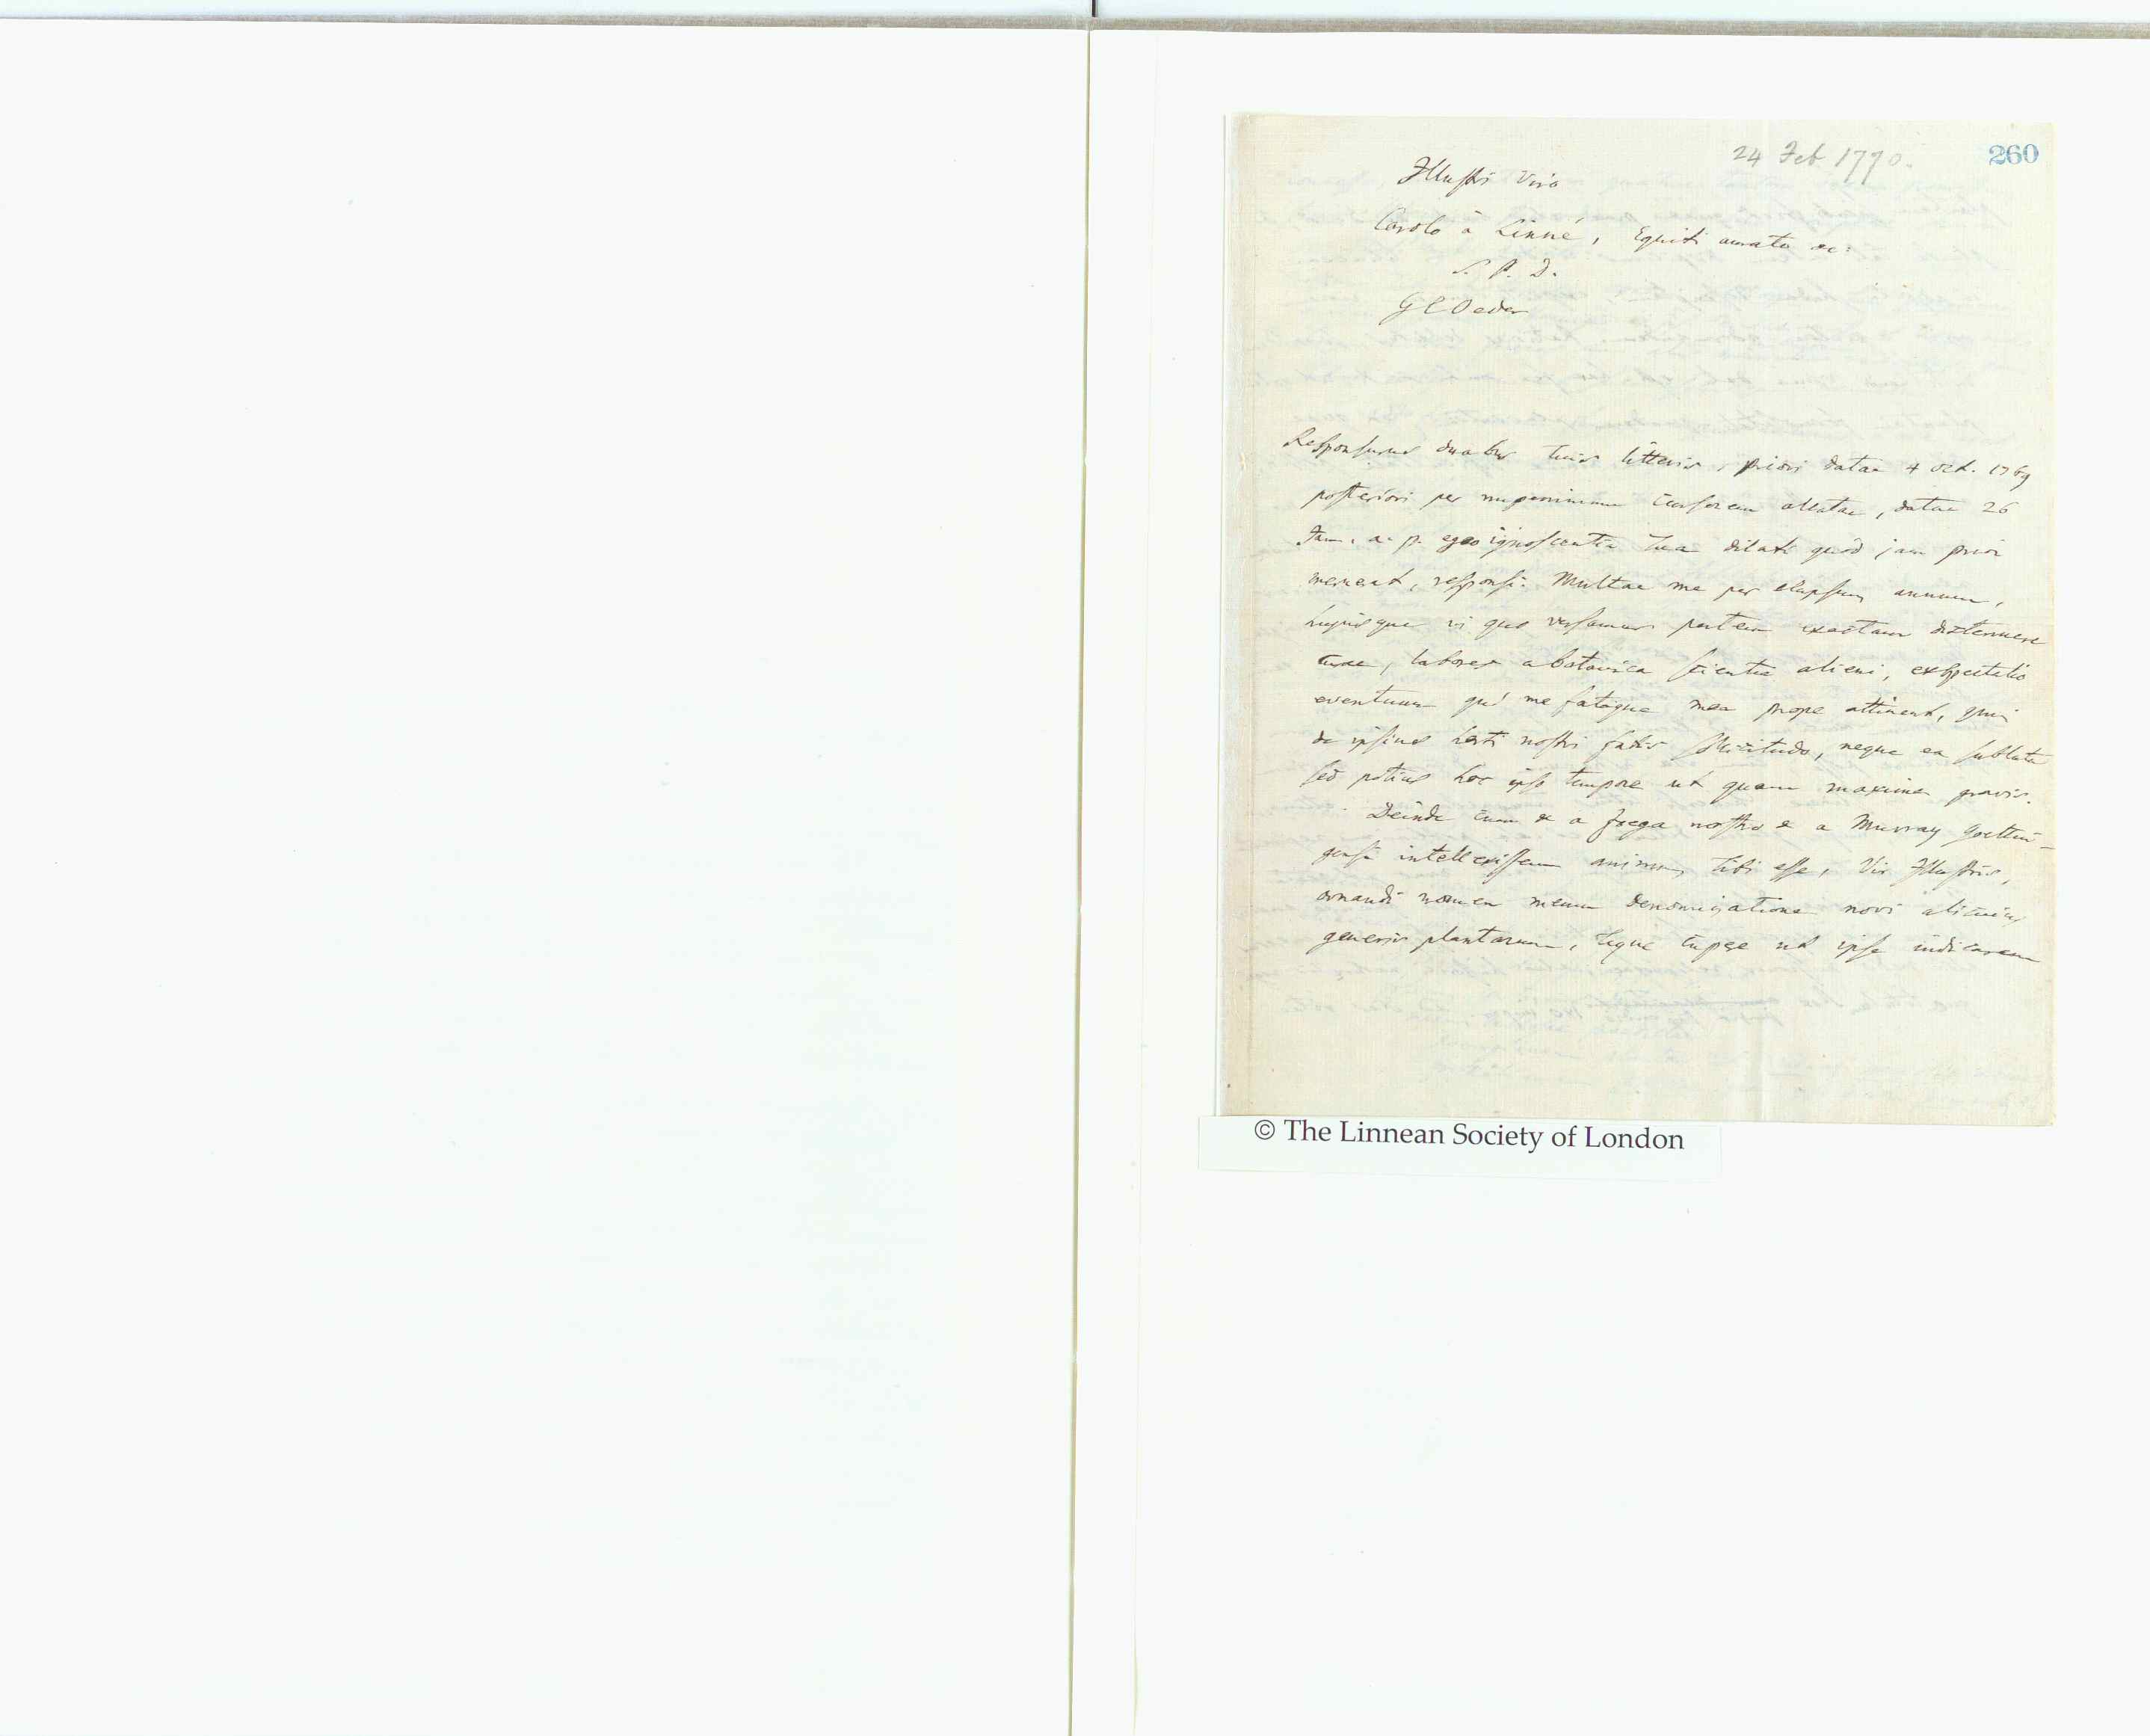 24 Feb 1770.
260
Illustri Viro
Carolo à Linné, Equiti aurato &c:
S. P. D.
G C Oeder
Responsurus duabus tuis litteris, priori datae 4 oct. 1769
posteriori per nuperrimum cursorem allatae, datae 26
Jan. a. p. egeo ignoscentia tua dilati quod jam prior
meruerat, responsi. Multae me per elapsum annum,
hujusque in quo versamur partem exactam distinuere
curae, labores a botanica scientia alieni, exspectatio
eventuum qui me fataque mea prope attinent, quin
de ipsius horti nostri fatis sollicitudo, neque ea sublata
sed potius hoc ipso tempore ut quam maxime gravis.
Deinde cum & a Zoega nostro & a Murray Goettin-
gensi intellexissem animum tibi esse, Vir Illustris,
ornandi nomen meum denominatione novi alicuius
generis plantarum, teque cupere ut ipse indicarem
© The Linnean Society of London